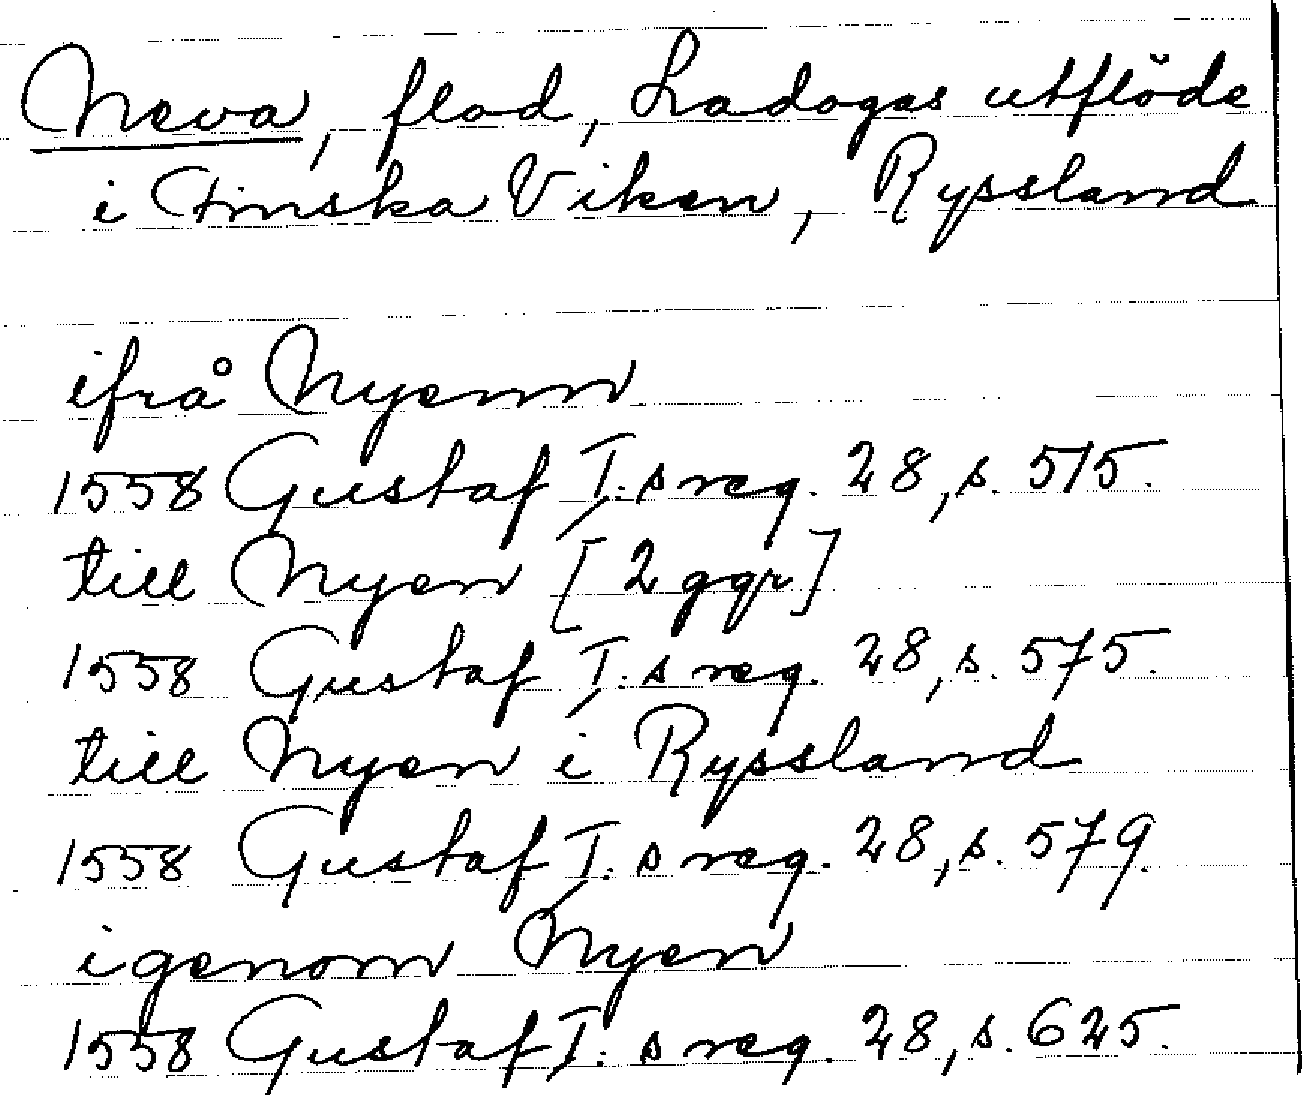 Neva, flod, Ladogas utflöde
i Finska Viken, Ryssland
ifrå Nyenn
1558 Gustaf I:s reg. 28, s. 515.
till Nyen [2 ggr]
1558 Gustaf I:s reg. 28, s. 575.
till Nyen i Ryssland
1558 Gustaf I:s reg. 28, s. 579.
igenom Nyen
1558 Gustaf I:s reg. 28, s. 625.